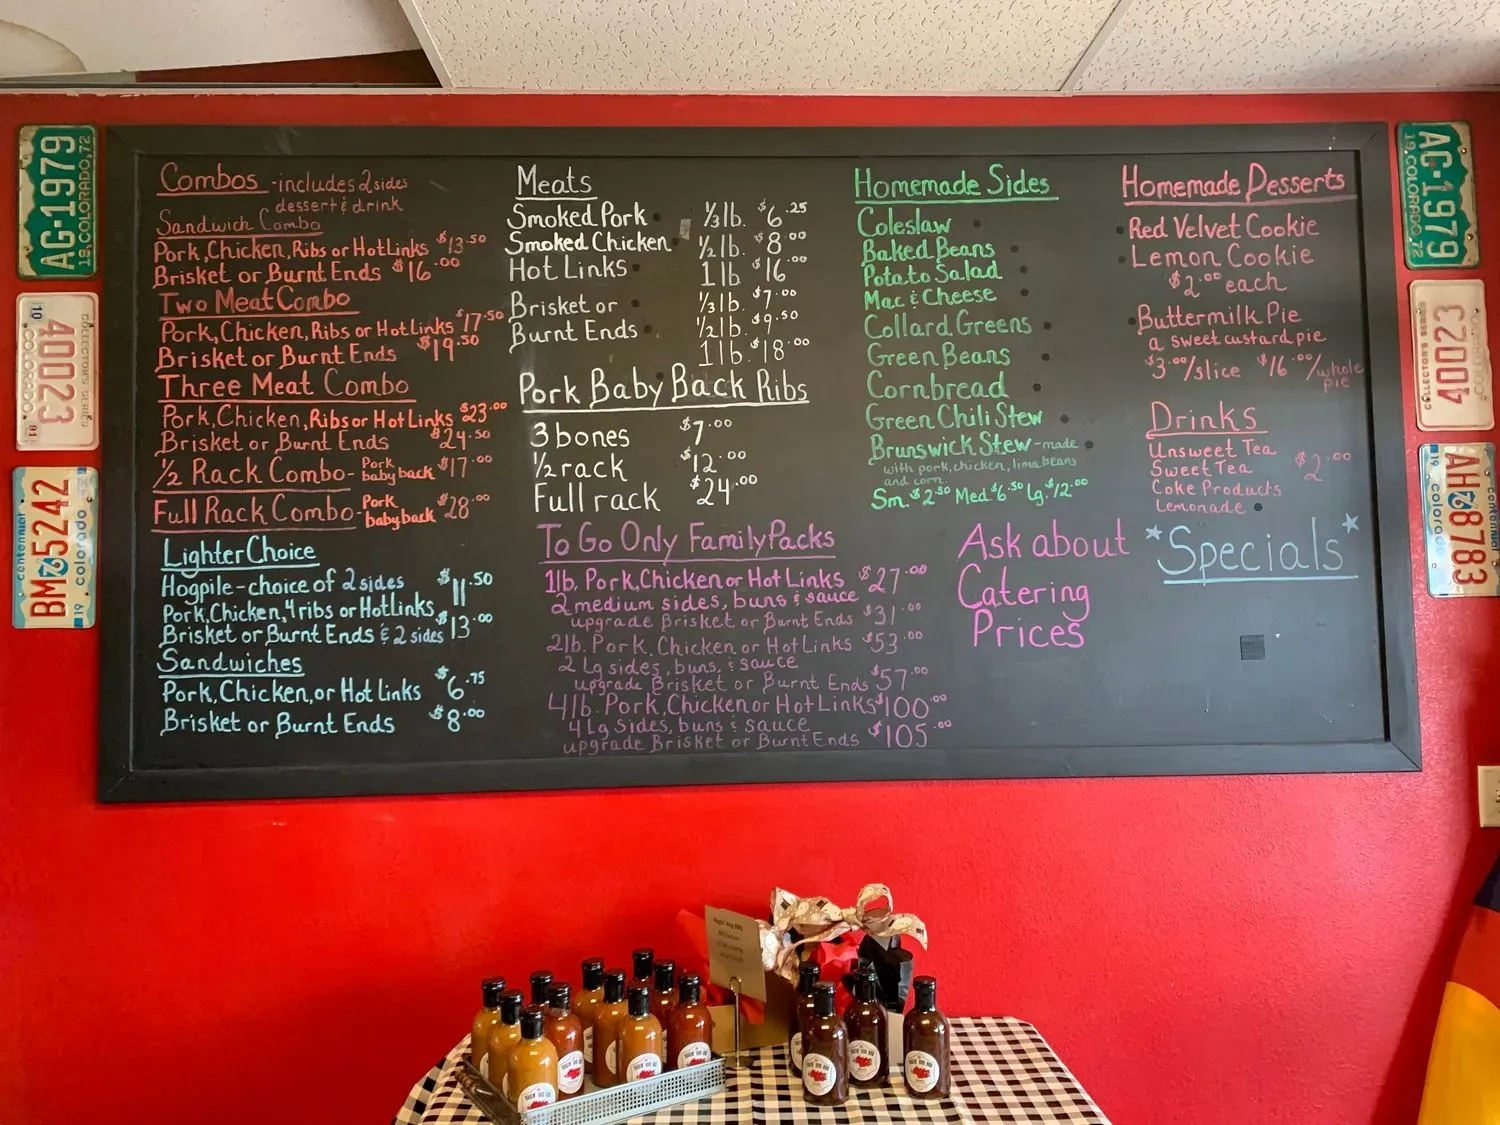 Combos - includes 2 sides
dessert & drink
Sandwich Combo
Pork, Chicken, Ribs or Hot Links $13.50
Brisket or Burnt Ends $16.00
Two Meat Combo
Pork, Chicken, Ribs or Hot Links $17.50
Brisket or Burnt Ends $19.50
Three Meat Combo
Pork, Chicken, Ribs or Hot Links $23.00
Brisket or Burnt Ends $24.50
1/2 Rack Combo - Pork baby back $17.00
Full Rack Combo - Pork baby back $28.00
Lighter Choice
Hogpile - choice of 2 sides $11.50
Pork, Chicken, 4 ribs or Hot Links
Brisket or Burnt Ends & 2 sides $13.00
Sandwiches
Pork, Chicken, or Hot Links $6.75
Brisket or Burnt Ends $8.00
Meats
Smoked Pork 1/3 lb. $6.25
Smoked Chicken 1/2 lb. $8.00
Hot Links 1 lb. $16.00
Brisket or 1/3 lb. $7.00
Burnt Ends 1/2 lb. $9.50
1 lb. $18.00
Pork Baby Back Ribs
3 bones $7.00
1/2 rack $12.00
Full rack $24.00
To Go Only Family Packs
1 lb. Pork, Chicken or Hot Links $27.00
2 medium sides, buns & sauce
upgrade Brisket or Burnt Ends $31.00
2 lb. Pork, Chicken or Hot Links $53.00
2 Lg sides, buns, & sauce
upgrade Brisket or Burnt Ends $57.00
4 lb. Pork, Chicken or Hot Links $100.00
4 Lg Sides, buns & sauce
upgrade Brisket or Burnt Ends $105.00
Homemade Sides
Coleslaw
Baked Beans
Potato Salad
Mac & Cheese
Collard Greens
Green Beans
Cornbread
Green Chili Stew
Brunswick Stew - made
with pork, chicken, lima beans
and corn.
Sm. $2.50 Med. $6.50 Lg. $12.00
Ask about
Catering
Prices
Homemade Desserts
Red Velvet Cookie
Lemon Cookie
$2.00 each
Buttermilk Pie
a sweet custard pie
$3.00/slice $16.00/whole
pie
Drinks
Unsweet Tea
Sweet Tea $2.00
Coke Products
Lemonade
*Specials*
AG-1979
19. COLORADO. 72
40023
COLLECTOR'S SERIES
COLORADO
10
91
BM 5242
centennial
19 colorado
AG-1979
19. COLORADO. 72
40023
COLLECTOR'S SERIES
AH 8783
centennial
19 colorado